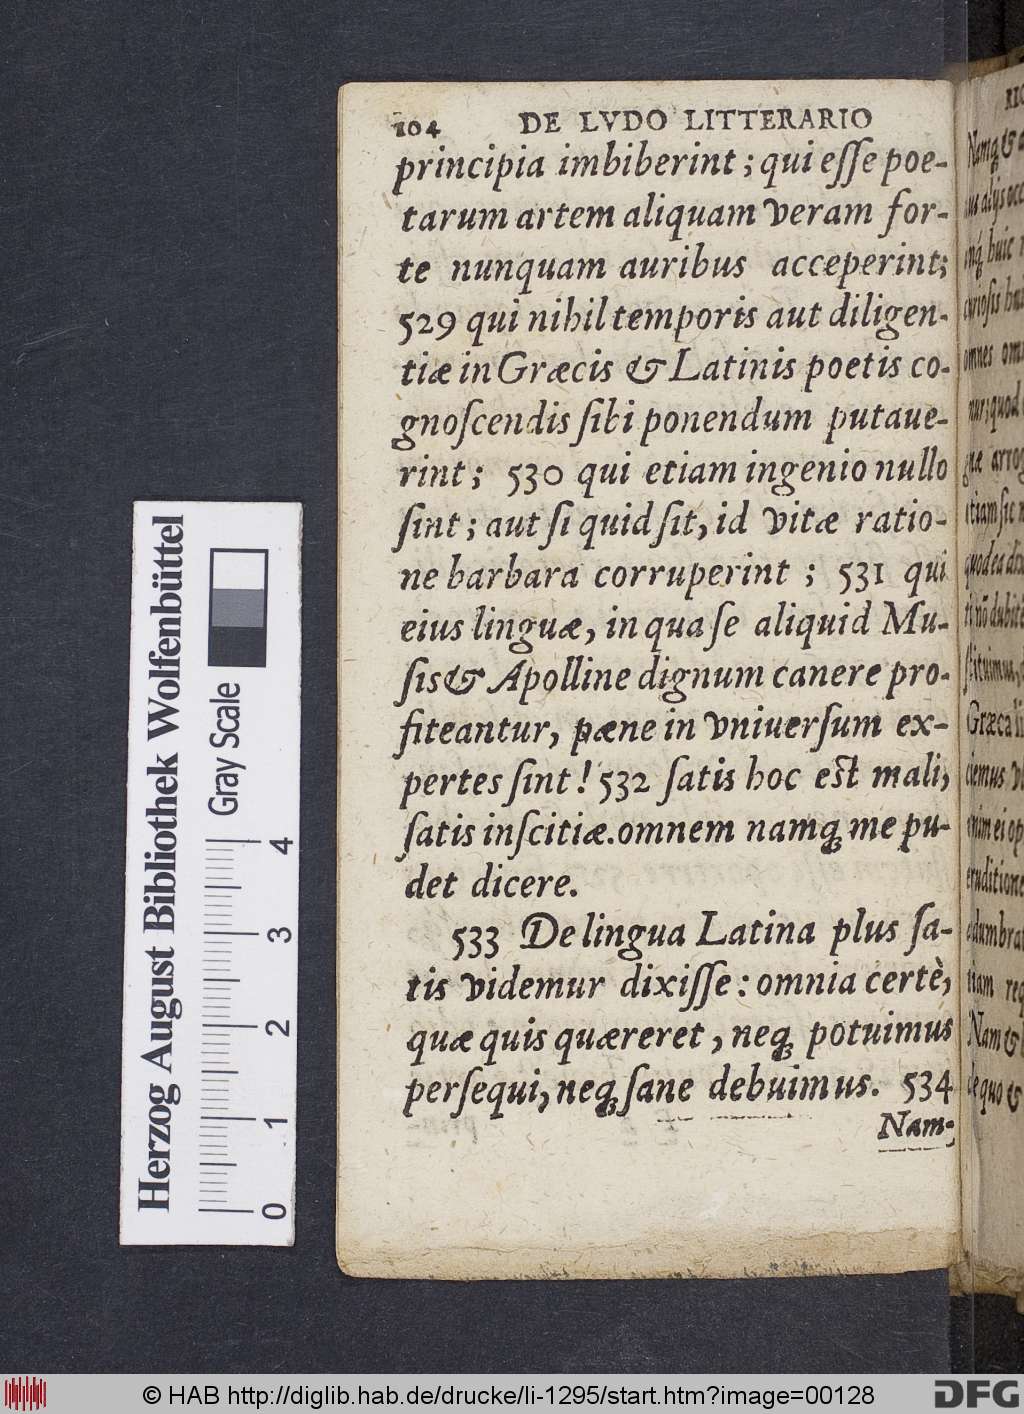 104 DE LVDO LITTERARIO
principia imbiberint; qui eſſe poe-
tarum artem aliquam veram for-
te nunquam auribus acceperint;
529 qui nihil temporis aut diligen-
tiæ in Græcis & Latinis poetis co-
gnoſcendis ſibi ponendum putaue-
rint; 530 qui etiam ingenio nullo
ſint; aut ſi quid ſit, id vitæ ratio-
ne barbara corruperint; 531 qui
eius linguæ, in qua ſe aliquid Mu-
ſis & Apolline dignum canere pro-
fiteantur, pæne in vniuerſum ex-
pertes ſint! 532 ſatis hoc eſt mali,
ſatis inſcitiæ. omnem namq́ me pu-
det dicere.
533 De lingua Latina plus ſa-
tis videmur dixiſſe: omnia certè,
quæ quis quæreret, neq́ potuimus
perſequi, neq́ ſane debuimus. 534
Nam-
Namq́ & a
omnes
quod
etiam ſic
quod ea
Græca
Nam &
de quo &
Herzog August Bibliothek Wolfenbüttel
Gray Scale
0 1 2 3 4
© HAB http://diglib.hab.de/drucke/li-1295/start.htm?image=00128
DFG